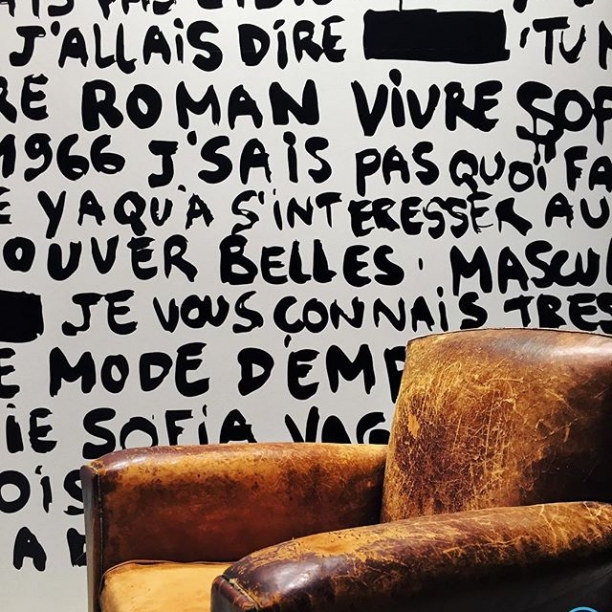 PAS
J'ALLAIS DIRE 'TU
RE ROMAN VIVRE SOF
1966 J'SAIS PAS QUOI FA
E YAQU'A S'INTERESSER AU
OUVER BELLES. MASCU
JE VOUS CONNAIS TRES
E MODE D'EMP
IE SOFIA VAG
OIS
A